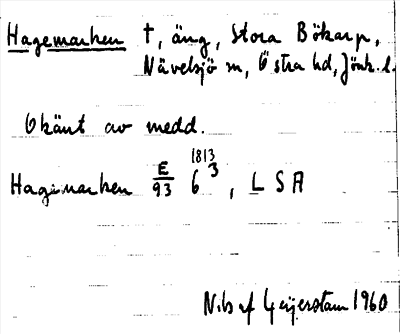 Hagemarken †, äng, Stora Bökarp,
Nävelsjö sn, Östra hd, Jönk. l.
Okänt av medd.
Hagemarken E/93 1813 6 3, LSA
Nils af Geijerstam 1960